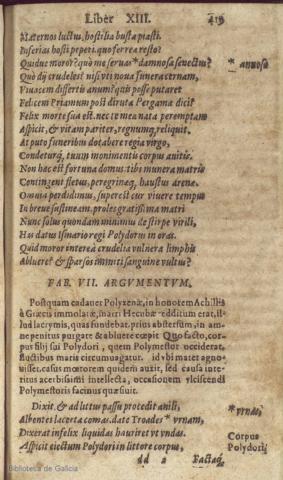 Liber XIII. 419
Maternos luctus, hostilia busta piasti.
Inferias hosti peperi. quo ferrea resto?
Quidue moror? quò me seruas *damnosa senectus? * annosa
Quò dij crudeles? nisi vti noua funera cernam,
Viuacem differtis anum? quis posse putaret
Felicem Priamum post diruta Pergama dici?
Felix morte sua est. nec te mea nata peremptam
Aspicit, & vitam pariter, regnumq; reliquit.
At puto funeribus dotabere regia virgo,
Condeturq; tuum monimentis corpus auitis.
Non hac est fortuna domus: tibi munera matris
Contingent fletus, peregrineq; haustus arenæ.
Omnia perdidimus, superest cur viuere tempus
In breue sustineam. proles gratissima matri
Nunc solus quondam minimus de stirpe virili,
Has datus Ismario regi Polydorus in oras.
Quid moror interea crudelia vulnera lymphis
Abluere? & sparsos immiti sanguine vultus?
FAB. VII. ARGVMENTVM.
Postquam cadauer Polyxenæ, in honorem Achillis
à Græcis immolatæ, matri Hecubæ redditum erat, il-
lud lacrymis, quas fundebat, prius abstersum, in am-
ne penitus purgare & abluere cœpit. Quo facto, cor-
pus filij sui Polydori, quem Polymestor occiderat,
fluctibus maris circumuagatur. id vbi mater agno-
uisset, casus mœrorem quidem auxit, sed causa inte-
ritus acerbissimi intellecta, occasionem vlciscendi
Polymestoris facinus quæsiuit.
Dixit. & ad littus passu procedit anili,
Albentes lacerta comas. date Troades * vrnam, * vrnas
Dixerat infelix liquidas hauriret vt vndas. Corpus
Aspicit eiectum Polydori in littore corpus, Polydori
dd 2 Factaq;
Biblioteca de Galicia